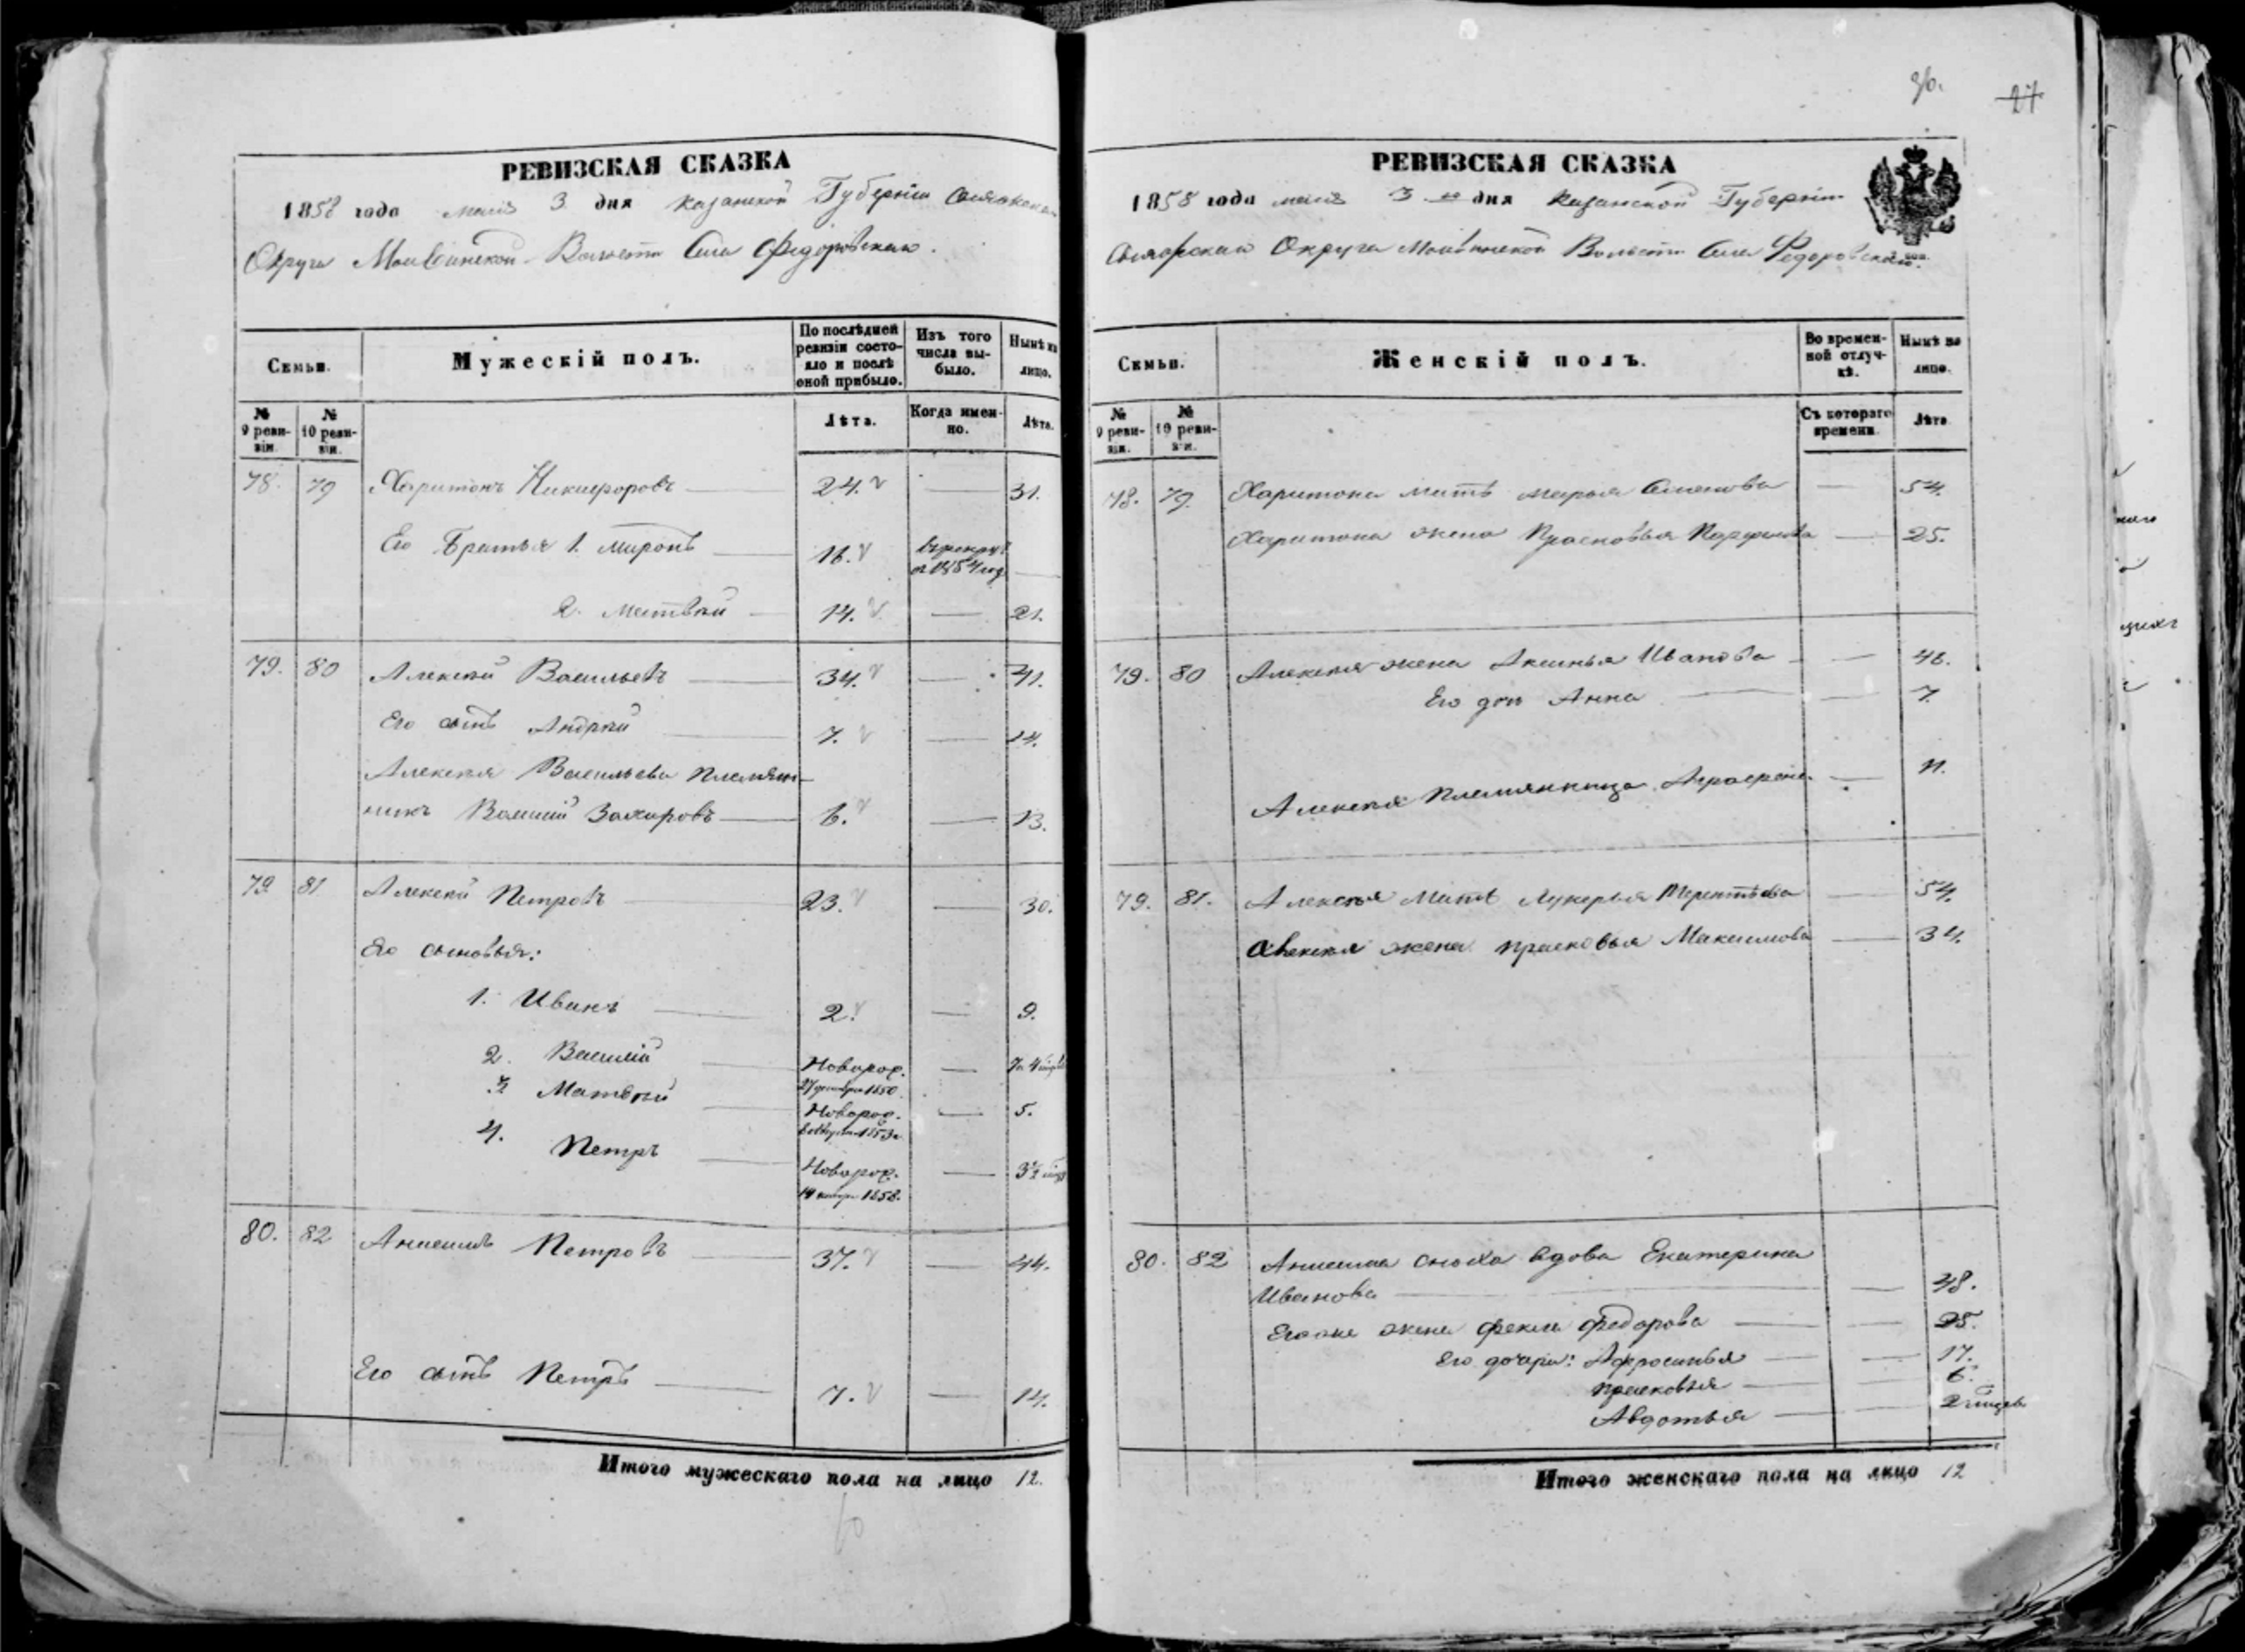 96.
27
РЕВИЗСКАЯ СКАЗКА
1858 года маія 3 дня Казанской Губерніи Свіяжскаго
Округа Моисинской Волости Села Федоровскаго.
Семьи.
Мужескій полъ.
По послѣдней ревизіи состояло и послѣ оной прибыло.
Изъ того числа выбыло.
Нынѣ на лицо.
№ 9 ревизіи.
№ 10 ревизіи.
Лѣта.
Когда именно.
Лѣта.
78. 79 Харитонъ Никифоровъ 24. — 31.
Его Братья 1. Миронъ 16. въ рекрут. въ 1854 год.
2. Матвѣй 14. — 21.
79. 80 Алексѣй Васильевъ 34. — 41.
Его сынъ Андрѣй 7. — 14.
Алексѣя Васильева племян-
никъ Василій Захаровъ 6. — 13.
79 81 Алексѣй Петровъ 23. — 30.
Его сыновья:
1. Иванъ 2. — 9.
2. Василій Новорож. — 7 л. 4 мѣс.
27 декабря 1850.
3. Матвѣй Новорож. — 5.
1853 г.
4. Петръ Новорож. — 3½ мѣс.
19 января 1858.
80. 82 Анисимъ Петровъ 37. — 44.
Его сынъ Петръ 7. — 14.
Итого мужескаго пола на лицо 12.
РЕВИЗСКАЯ СКАЗКА
1858 года маія 3 го дня Казанской Губерніи
Округа Моисинской Волости Села Федоровскаго.
Семьи.
Женскій полъ.
Во временной отлучкѣ.
Нынѣ на лицо.
№ 9 ревизіи.
№ 10 ревизіи.
Съ котораго времени.
Лѣта
78. 79. Харитона мать Марья Семенова — 54.
Харитона жена Прасковья Парфенова — 25.
79. 80 Алексѣя жена Аксинья Иванова — 46.
Его доч Анна — 7.
Алексѣя племянница Аграфена — 11.
79. 81. Алексѣя мать Лукерья Терентьева — 54.
Алексѣя жена Прасковья Максимова — 34.
80. 82 Анисима сноха вдова Екатерина
Иванова — 48.
Его же жена Фекла Федорова — 25.
Его дочери: Афросинья — 17.
Прасковья — 6.
Авдотья — 2 мѣсяцев
Итого женскаго пола на лицо 12